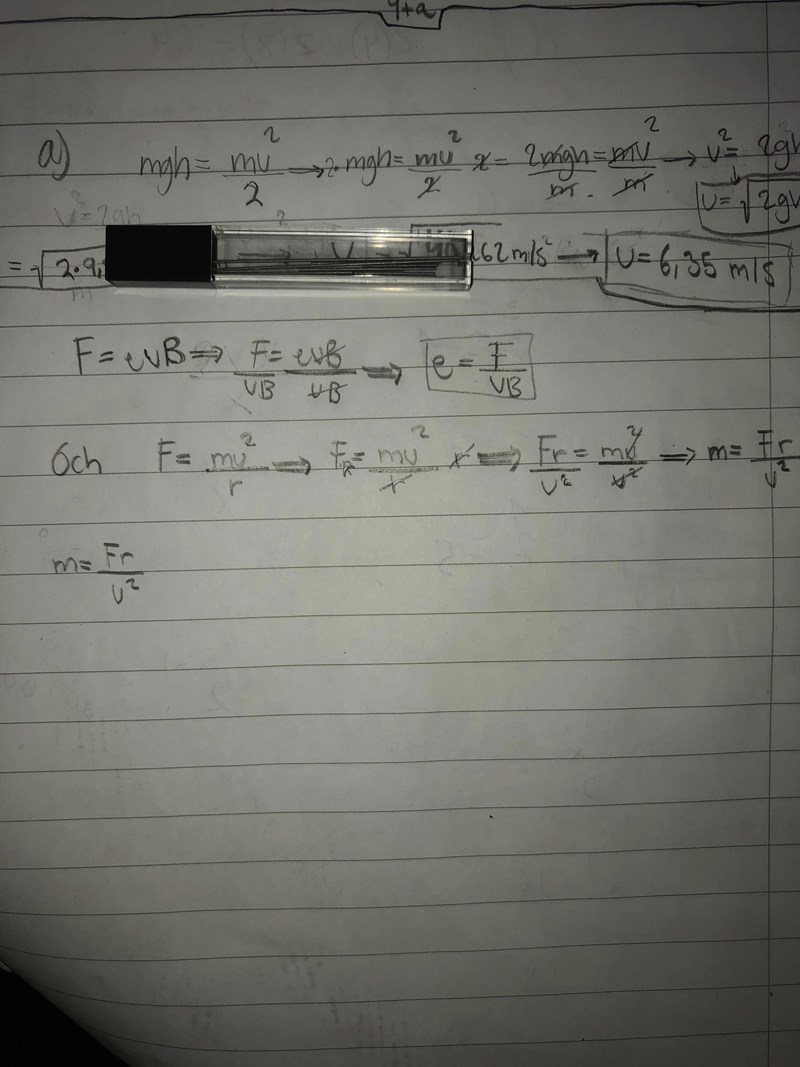 4+a
a) mgh = mv²/2 → 2·mgh = mv²/2 · 2 = 2mgh/m = mv²/m → v² = 2gh
v = √2gh
v² = 2gh
= √2·9, 62 m/s² → v = 6,35 m/s
F = evB ⇒ F/vB = evB/vB ⇒ e = F/vB
Och F = mv²/r ⇒ Fr = mv²/r r ⇒ Fr/v² = mv²/v² ⇒ m = Fr/v²
m = Fr/v²